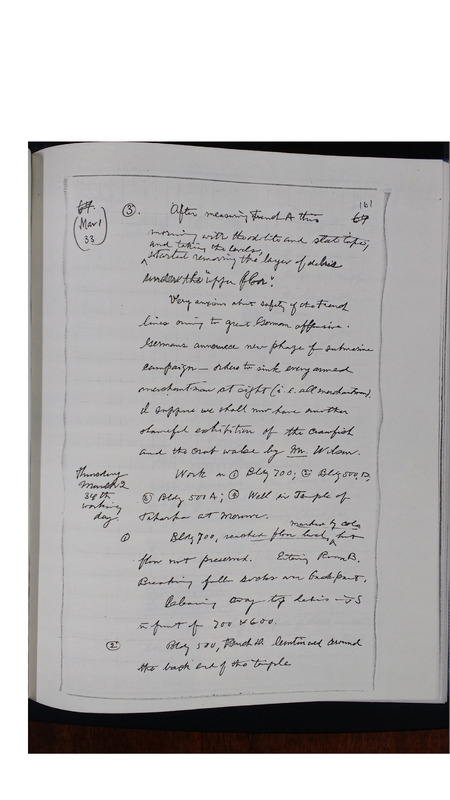 161
67.
Mar 1
33
③. After measuring Trench A this 67
morning with theodolite and steel tape,
and taking the levels,
started removing the layer of debris
under the "upper floor".
Very anxious about safety of the French
lines owing to great German offensive.
Germans announce new phase of submarine
campaign — orders to sink every armed
merchantman at sight (i.e. all merchantmen).
I suppose we shall now have another
shameful exhibition of the Crawfish
and the Crab walse by Mr. Wilson.
Thursday
March 2
34th
working
day
Work in ① Bldg 700; ② Bldg 500, D;
③ Bldg 500A; ④ Well in Temple of
Taharka at
① Bldg 700, reached floor level, but
marked by cols
floor not preserved. Entering Room B.
Breaking fallen blocks in part.
Clearing away top debris
in front of 700 & 600.
② Bldg 500, Trench D continued around
the back end of the temple